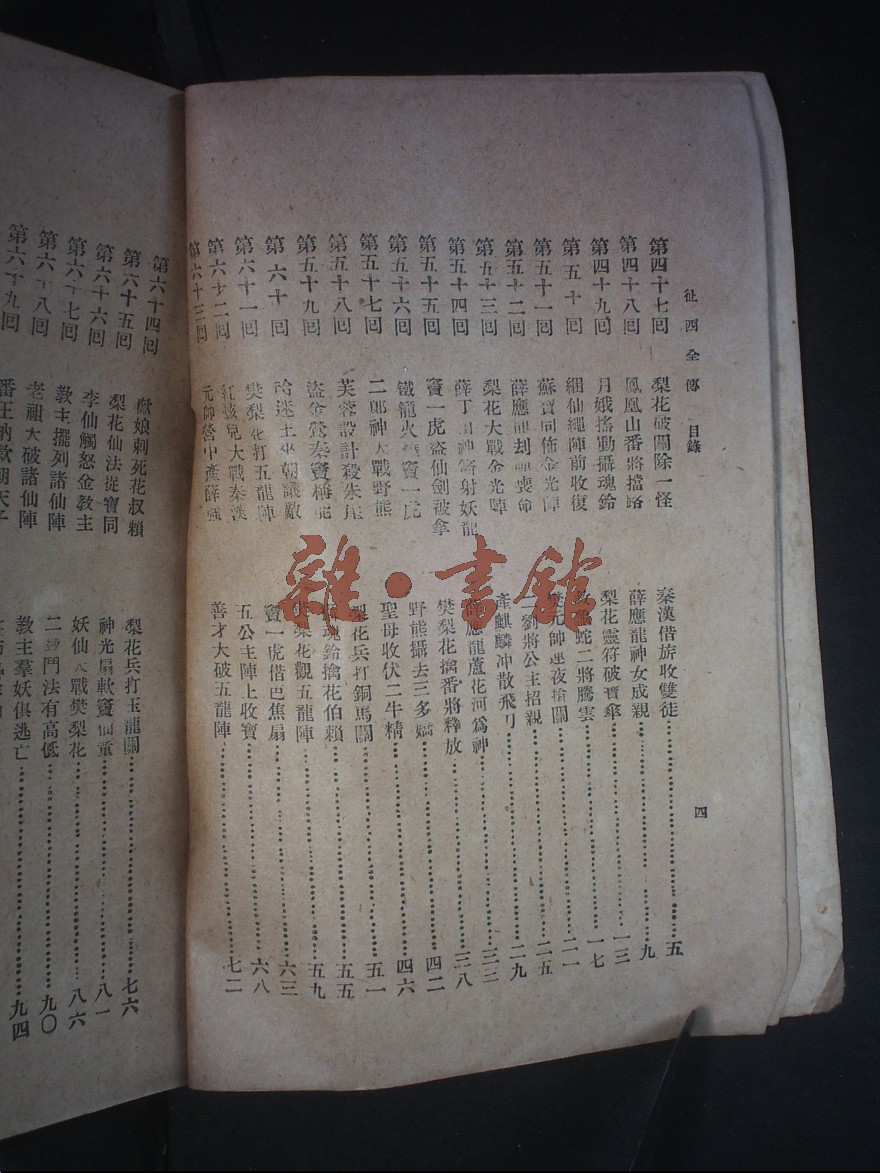 征西全傳 目錄 四
第四十七回 梨花破關除一怪 秦漢借旂收雙徒 五
第四十八回 鳳凰山番將擋路 薛應龍神女成親 九
第四十九回 月娥搖動攝魂鈴 梨花靈符破寶傘 一三
第五十回 綑仙繩陣前收復 蛇二將騰雲 一七
第五十一回 蘇寶同佈金光陣 元帥連夜搶關 二一
第五十二回 薛應龍刦營喪命 劉將公主招親 二五
第五十三回 梨花大戰金光陣 產麒麟冲散飛刀 二九
第五十四回 薛丁山神箭射妖龍 薛應龍蘆花河爲神 三三
第五十五回 竇一虎盜仙劍被拿 樊梨花擒番將釋放 三八
第五十六回 鐵籠火燒竇一虎 野熊攝去三多嬌 四二
第五十七回 二郎神大戰野熊 聖母收伏二牛精 四六
第五十八回 芙蓉設計殺朱崖 梨花兵打銅馬關 五一
第五十九回 盜金鶯秦竇稱能 魂鈴擒花伯賴 五五
第六十回 哈迷王坐朝議敵 樊梨花觀五龍陣 五九
第六十一回 樊梨花打五龍陣 竇一虎借芭焦扇 六三
第六十二回 紅孩兒大戰秦漢 五公主陣上收寶 六八
第六十三回 元帥營中產薛强 善才大破五龍陣 七二
第六十四回 娘刺死花叔賴 梨花兵打玉龍關 七六
第六十五回 梨花仙法捉寶同 神光扇軟竇仙童 八一
第六十六回 李仙觸怒金教主 妖仙大戰樊梨花 八六
第六十七回 教主擺列諸仙陣 二教鬥法有高低 九〇
第六十八回 老祖大破諸仙陣 教主羣妖俱逃亡 九四
第六十九回 番王納款朝天子
雜·書館